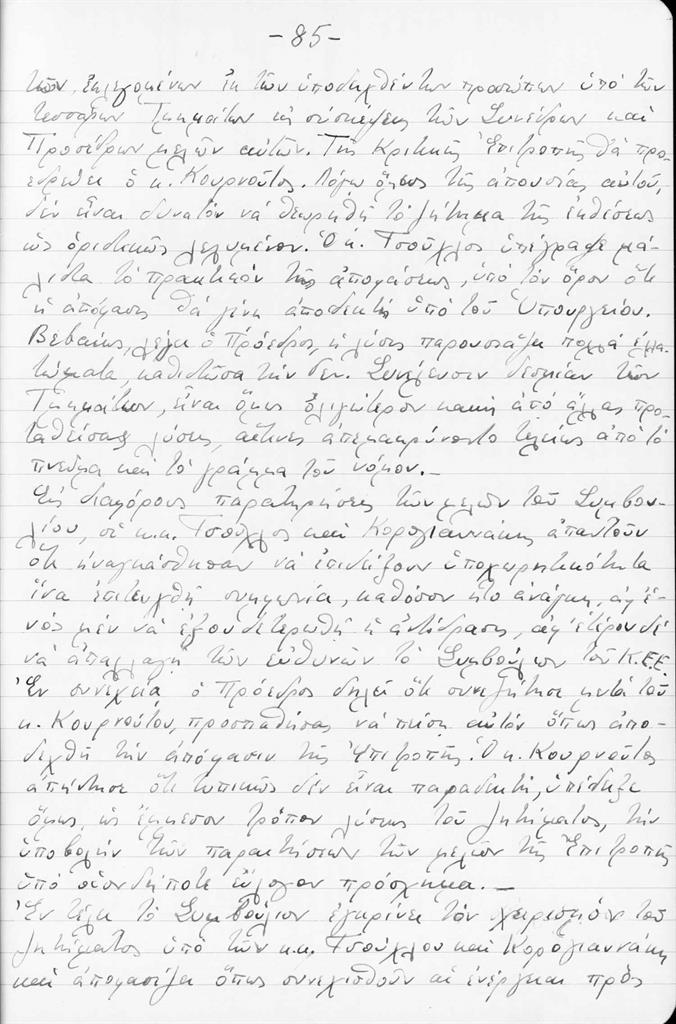 -85-
τῶν, ἐκλεγομένων ἐκ τῶν ὑποδειχθέντων προσώπων ὑπό τῶν
τεσσάρων Τμημάτων εἰς σύσκεψεις τῶν Συνέδρων καί
Προσέδρων μελῶν αὐτῶν. Τῆς Κριτικῆς Ἐπιτροπῆς θά προ-
εδρεύει ὁ κ. Κουρνοῦτος. Λόγω ὅμως τῆς ἀπουσίας αὐτοῦ,
δέν εἶναι δυνατόν νά θεωρηθῆ τό ζήτημα τῆς ἐκθέσεως
ὡς ὁριστικῶς λελυμένον. Ὁ κ. Τσούχλος ὑπέγραψε μά-
λιστα τό πρακτικόν τῆς ἀποφάσεως, ὑπό τόν ὅρον ὅτι
ἡ ἀπόφασις θά γίνη ἀποδεκτή ὑπό τοῦ Ὑπουργείου.
Βεβαίως, λέγει ὁ Πρόεδρος, ἡ λύσις παρουσιάζει πολλά ἐλατ-
τώματα, καθιστῶσα τήν Γεν. Συνέλευσιν δεσμίαν τῶν
Τμημάτων, εἶναι ὅμως ὀλιγώτερον κακή ἀπό ἄλλας προ-
ταθείσας λύσεις, αἵτινες ἀπεμακρύνοντο τελείως ἀπό τό
πνεῦμα καί τό γράμμα τοῦ νόμου.-
Εἰς διαφόρους παρατηρήσεις τῶν μελῶν τοῦ Συμβου-
λίου, οἱ κ.κ. Τσούχλος καί Κορογιαννάκης ἀπαντοῦν
ὅτι ἠναγκάσθησαν νά ἐπιδείξουν ὑποχωρητικότητα
ἵνα ἐπιτευχθῆ συμφωνία, καθόσον ἦτο ἀνάγκη, ἀφ' ἑ-
νός μέν νά ἐξουδετερωθῆ ἡ ἀντίδρασις, ἀφ' ἑτέρου δέ
νά ἀπαλλαγῆ τῶν εὐθυνῶν τό Συμβούλιον τοῦ Κ.Ε.Ε.
Ἐν συνεχεία ὁ Πρόεδρος δηλεῖ ὅτι συνεζήτησε μετά τοῦ
κ. Κουρνούτου, προσπαθήσας νά πείση αὐτόν ὅπως ἀπο-
δεχθῆ τήν ἀπόφασιν τῆς Ἐπιτροπῆς. Ὁ κ. Κουρνοῦτος
ἀπήντησε ὅτι τυπικῶς δέν εἶναι παραδεκτή, ὑπέδειξε
ὅμως, ὡς ἔμμεσον τρόπον λύσεως τοῦ ζητήματος, τήν
ὑποβολήν τῶν παραιτήσεων τῶν μελῶν τῆς Ἐπιτροπῆς
ὑπό οἱονδήποτε εὔλογον πρόσχημα.-
Ἐν τέλει τό Συμβούλιον ἐγκρίνει τόν χειρισμόν τοῦ
ζητήματος ὑπό τῶν κ.κ. Τσούχλου καί Κορογιαννάκη
καί ἀποφασίζει ὅπως συνεχισθοῦν αἱ ἐνέργειαι πρός